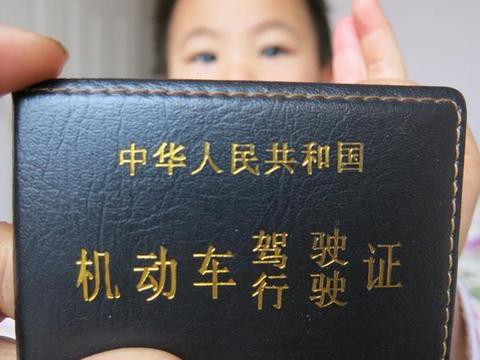 中华人民共和国
机动车驾驶证
行驶